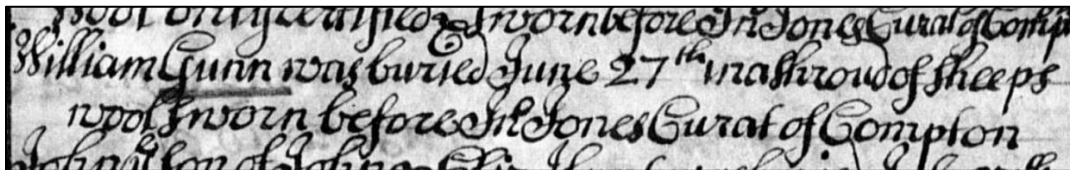 wool only certified & sworn before Jn Jones Curat of Comp
William Gunn was buried June 27th in a shroud of sheeps
wool sworn before Jn Jones Curat of Compton
John ye son of John &